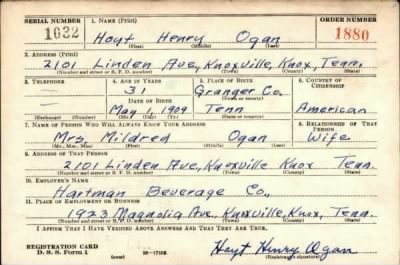 SERIAL NUMBER 1. NAME (Print) ORDER NUMBER
1632 Hoyt Henry Ogan 1880
(First) (Middle) (Last)
2. ADDRESS (Print)
2101 Linden Ave, Knoxville, Knox, Tenn.
(Number and street or R. F. D. number) (Town) (County) (State)
3. TELEPHONE 4. AGE IN YEARS 5. PLACE OF BIRTH 6. COUNTRY OF CITIZENSHIP
31 Granger Co.
DATE OF BIRTH (Town or county)
May 1, 1909 Tenn American
(Exchange) (Number) (Mo.) (Day) (Yr.) (State or country)
7. NAME OF PERSON WHO WILL ALWAYS KNOW YOUR ADDRESS 8. RELATIONSHIP OF THAT PERSON
Mrs. Mildred Ogan Wife
(Mr., Mrs., Miss) (First) (Middle) (Last)
9. ADDRESS OF THAT PERSON
2101 Linden Ave, Knoxville Knox Tenn.
(Number and street or R. F. D. number) (Town) (County) (State)
10. EMPLOYER'S NAME
Hartman Beverage Co.,
11. PLACE OF EMPLOYMENT OR BUSINESS
1923 Magnolia Ave, Knoxville, Knox, Tenn.
(Number and street or R. F. D. number) (Town) (County) (State)
I AFFIRM THAT I HAVE VERIFIED ABOVE ANSWERS AND THAT THEY ARE TRUE.
REGISTRATION CARD
D. S. S. Form 1 Hoyt Henry Ogan
(Registrant's signature)